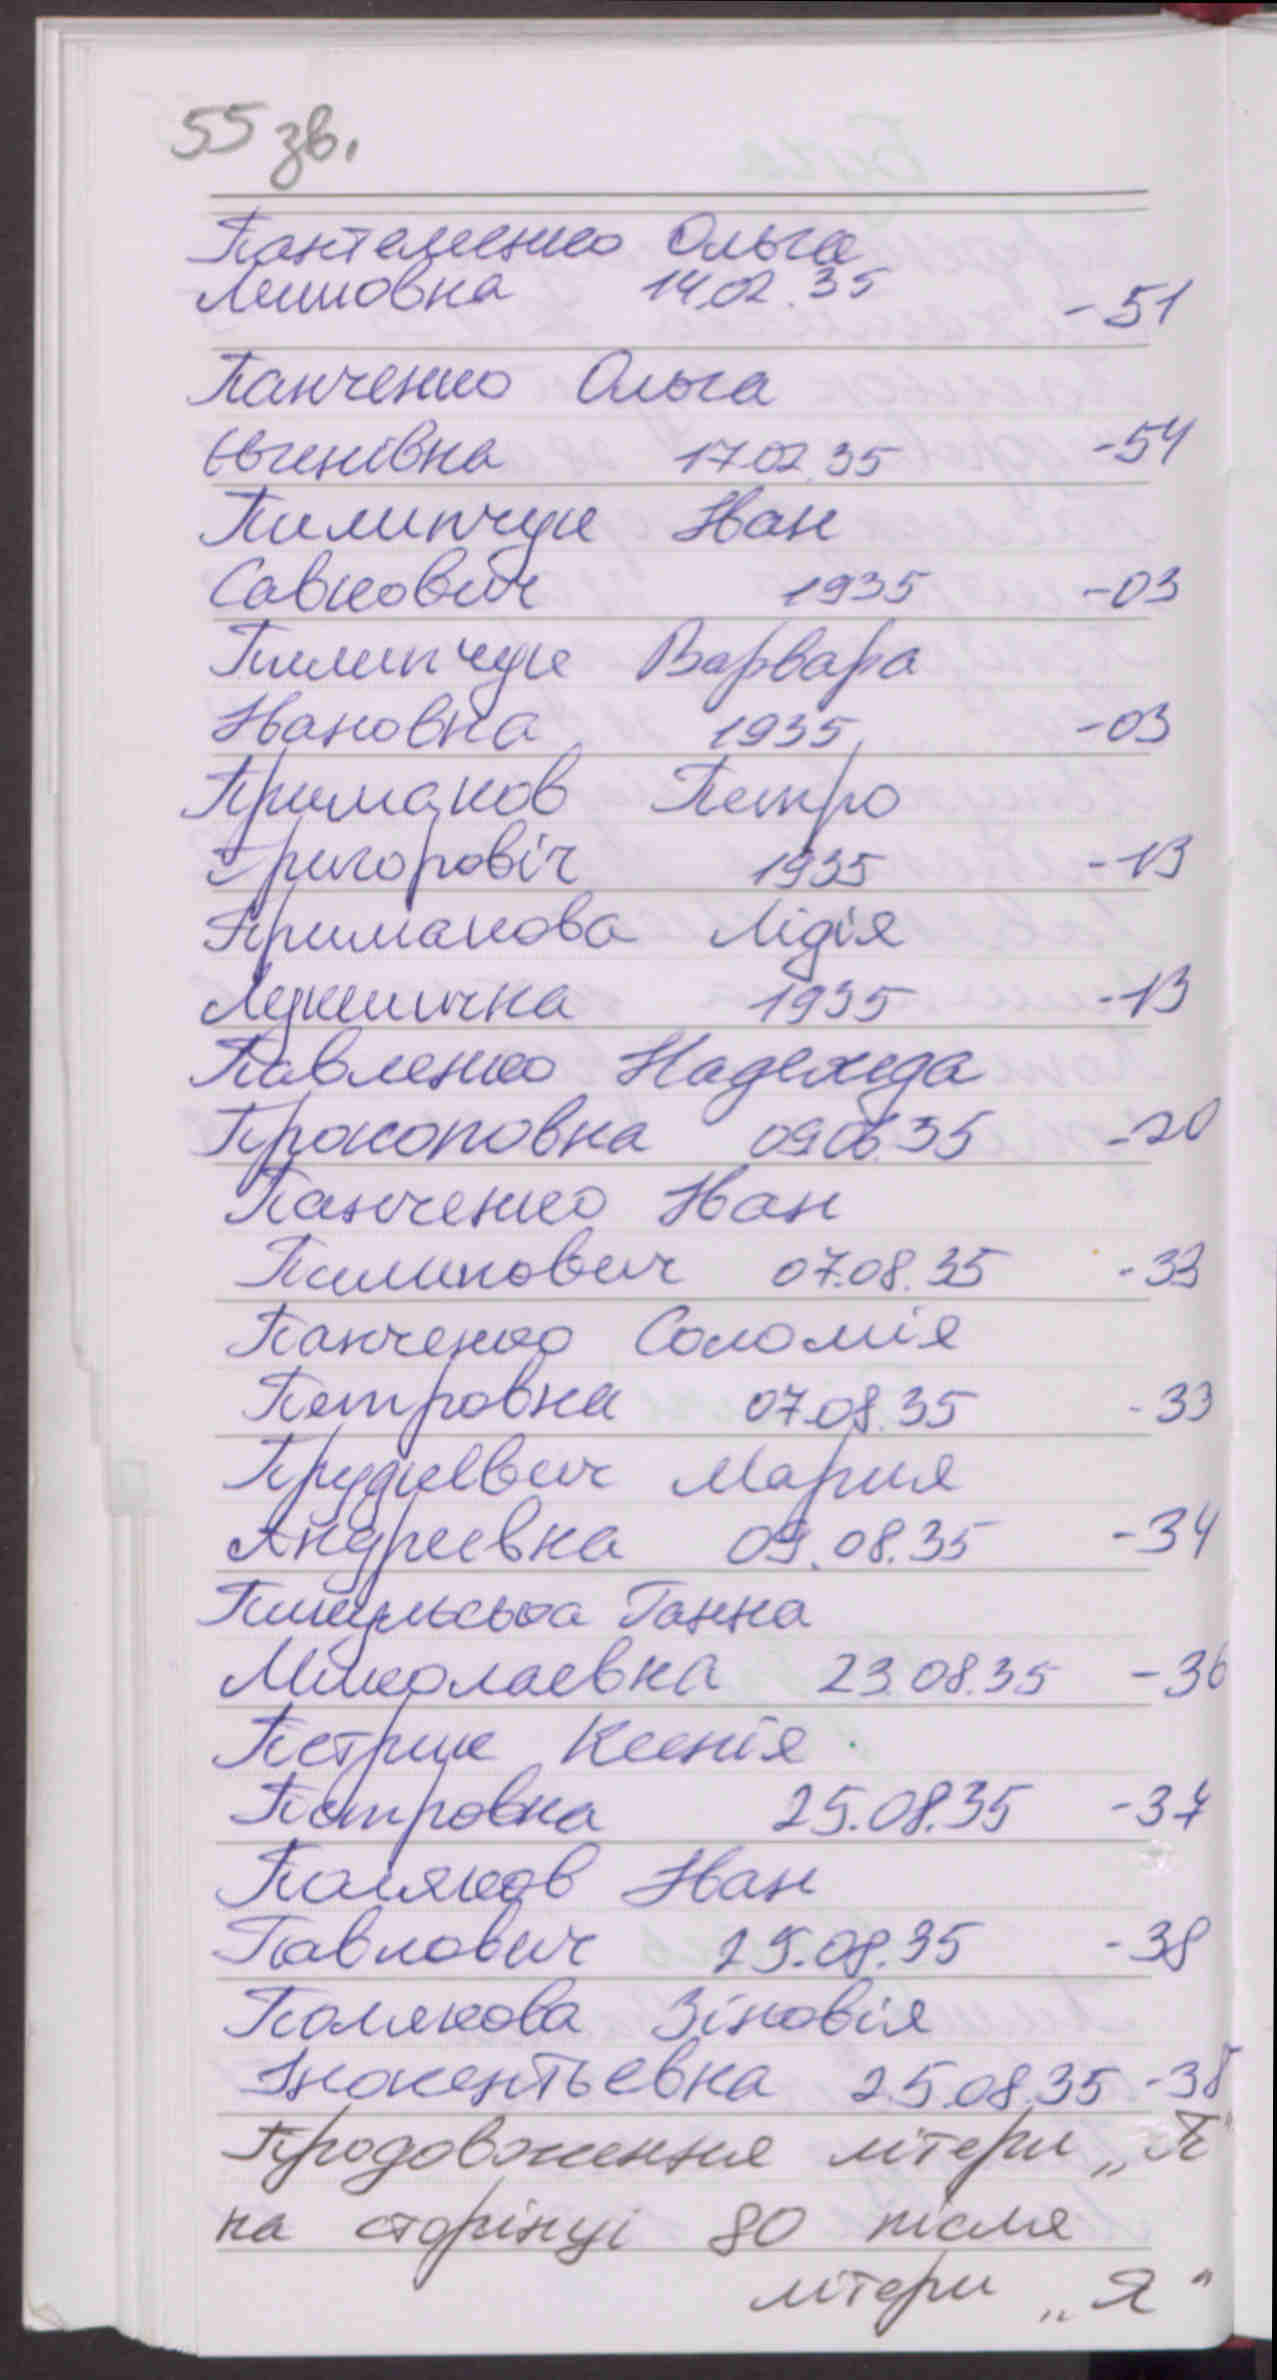 55 зв.
Пантеленко Ольга
14.02.35
-51
Панченко Ольга
Євгенівна 17.02.35 -54
Пилипчук Іван
Савкович 1935 -03
Пилипчук Варвара
Івановна 1935 -03
Примаков Петро
Григоровіч 1935 -13
Примакова Лідія
1935 -13
Павленко Надежда
Прокоповна 09.06.35 -20
Панченко Іван
Пилипович 07.08.35 -33
Панченко Соломія
Петровна 07.08.35 -33
Мария
Андреевна 09.08.35 -34
Ганна
Миколаевна 23.08.35 -36
Петрик Ксенія
Петровна 25.08.35 -37
Поляков Іван
Павлович 25.08.35 -38
Полякова Зіновія
Інокентьевна 25.08.35 -38
Продовження літери „П"
на сторінці 80 після
літери „Я"